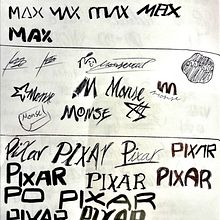 MAX MAX MAX MAX
MAX
Monse
M Monse
Monse
MONSE
monse
Pixar PIXAR Pixar PIXAR
PIXAR PIXAR PIXAR
PO PIXAR
PIXAR PIXAR